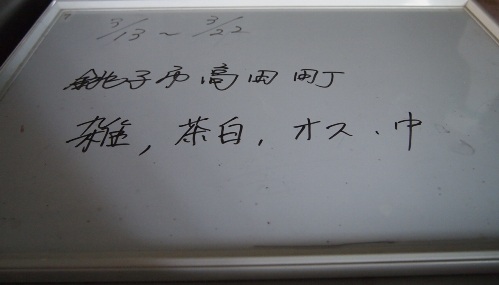 3/13～3/22
銚子市高田町
雑，茶白，オス、中